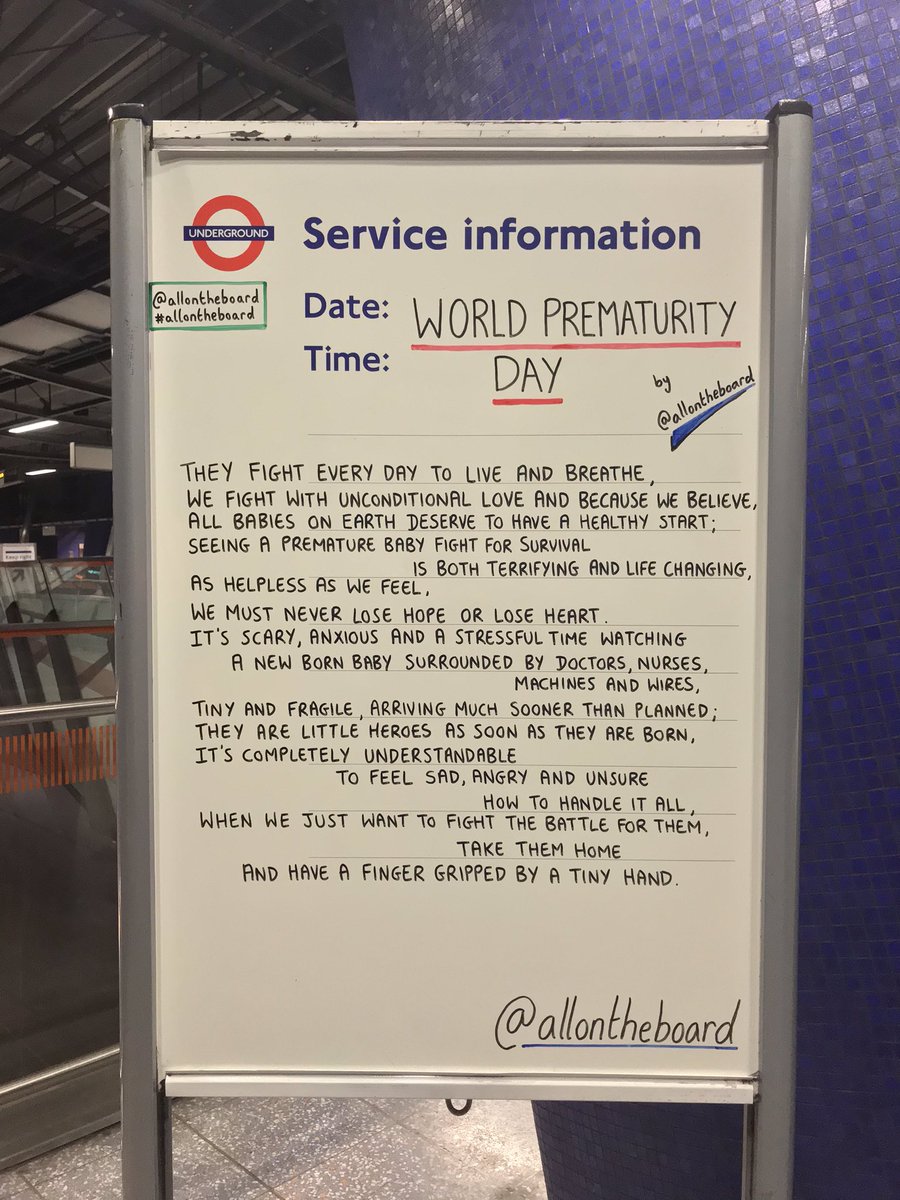 UNDERGROUND
Service information
@allontheboard
#allontheboard
Date: WORLD PREMATURITY
Time: DAY
by
@allontheboard
THEY FIGHT EVERY DAY TO LIVE AND BREATHE,
WE FIGHT WITH UNCONDITIONAL LOVE AND BECAUSE WE BELIEVE,
ALL BABIES ON EARTH DESERVE TO HAVE A HEALTHY START;
SEEING A PREMATURE BABY FIGHT FOR SURVIVAL
IS BOTH TERRIFYING AND LIFE CHANGING,
AS HELPLESS AS WE FEEL,
WE MUST NEVER LOSE HOPE OR LOSE HEART.
IT'S SCARY, ANXIOUS AND A STRESSFUL TIME WATCHING
A NEW BORN BABY SURROUNDED BY DOCTORS, NURSES,
MACHINES AND WIRES,
TINY AND FRAGILE, ARRIVING MUCH SOONER THAN PLANNED;
THEY ARE LITTLE HEROES AS SOON AS THEY ARE BORN,
IT'S COMPLETELY UNDERSTANDABLE
TO FEEL SAD, ANGRY AND UNSURE
HOW TO HANDLE IT ALL,
WHEN WE JUST WANT TO FIGHT THE BATTLE FOR THEM,
TAKE THEM HOME
AND HAVE A FINGER GRIPPED BY A TINY HAND.
@allontheboard
Keep right